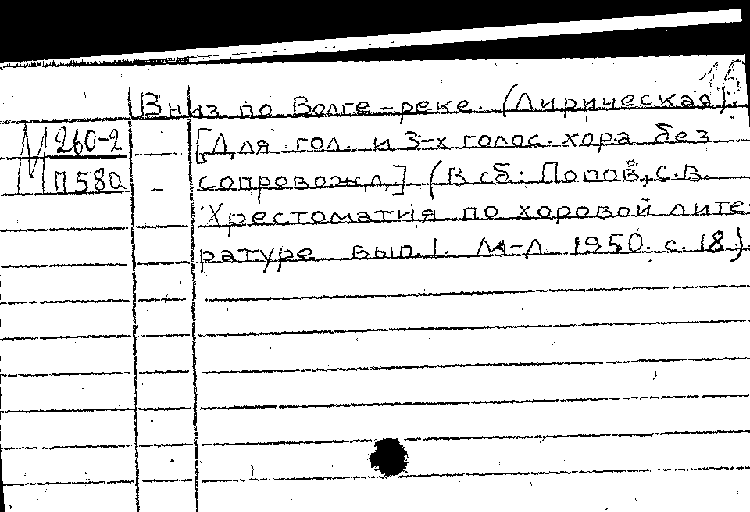 15
Вниз по Волге-реке. (Лирическая).
М 260-2 [Для гол. и 3-х голос. хора без
П 580 — сопровожд.] (В сб: Попов, С.В.
Хрестоматия по хоровой лите-
ратуре вып.1. М-Л 1950. с. 18)